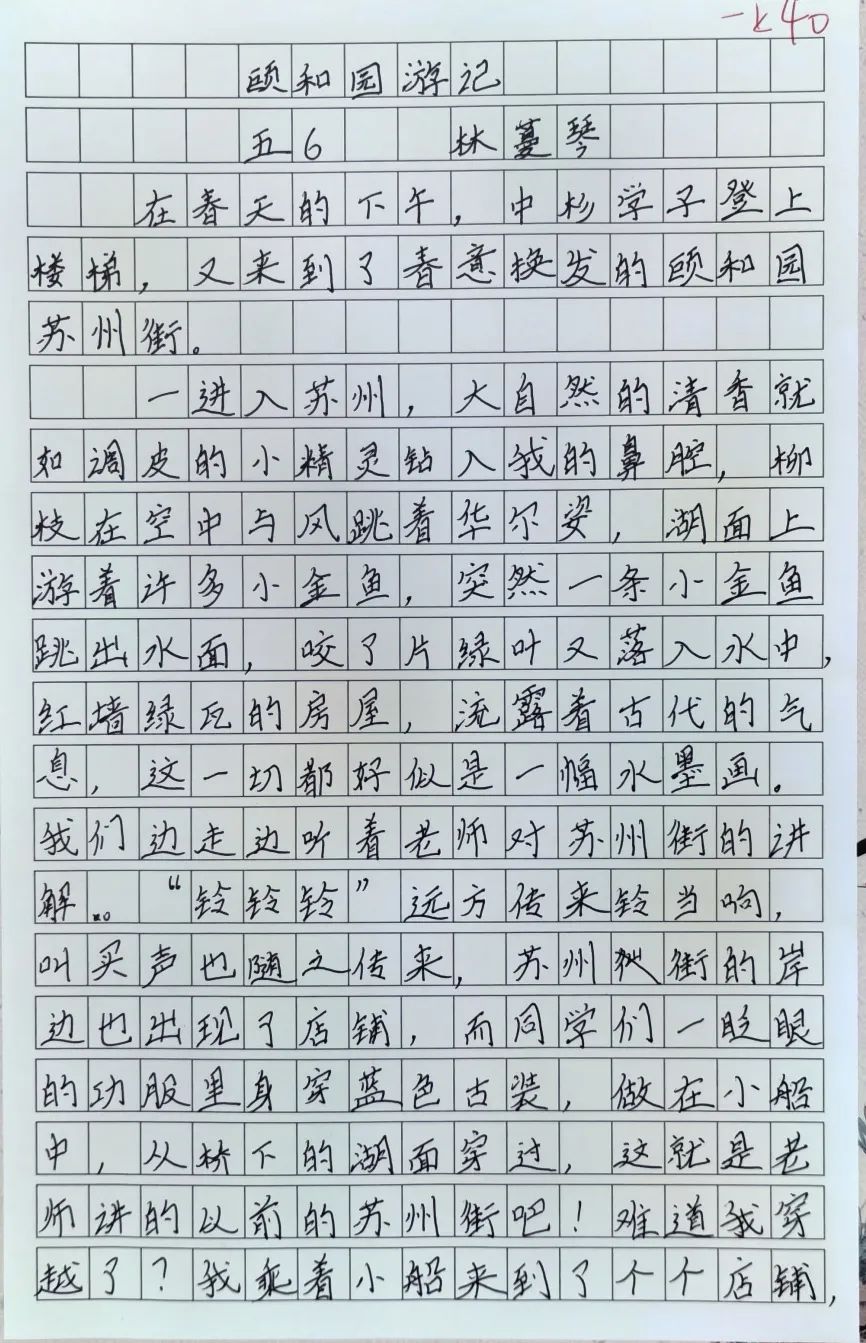 一k40
颐和园游记
五6 林蔓琴
在春天的下午，中杉学子登上
楼梯，又来到了春意换发的颐和园
苏州街。
一进入苏州，大自然的清香就
如调皮的小精灵钻入我的鼻腔，柳
枝在空中与风跳着华尔姿，湖面上
游着许多小金鱼，突然一条小金鱼
跳出水面，咬了片绿叶又落入水中，
红墙绿瓦的房屋，流露着古代的气
息，这一切都好似是一幅水墨画。
我们边走边听着老师对苏州街的讲
解。“铃铃铃”远方传来铃当响，
叫买声也随之传来，苏州街的岸
边也出现了店铺，而同学们一眨眼
的功服里身穿蓝色古装，做在小船
中，从桥下的湖面穿过，这就是老
师讲的以前的苏州街吧！难道我穿
越了？我乘着小船来到了个个店铺，